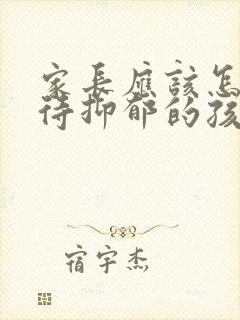 家長應該怎
待抑郁的孩
宿宇杰